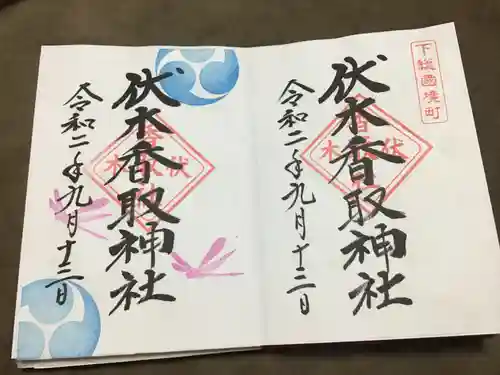 下総國境町
伏木香取神社
令和二年九月十三日
伏木香取神社
令和二年九月十三日